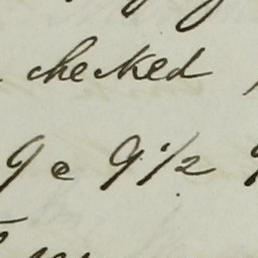 checked
9 @ 9 1/2